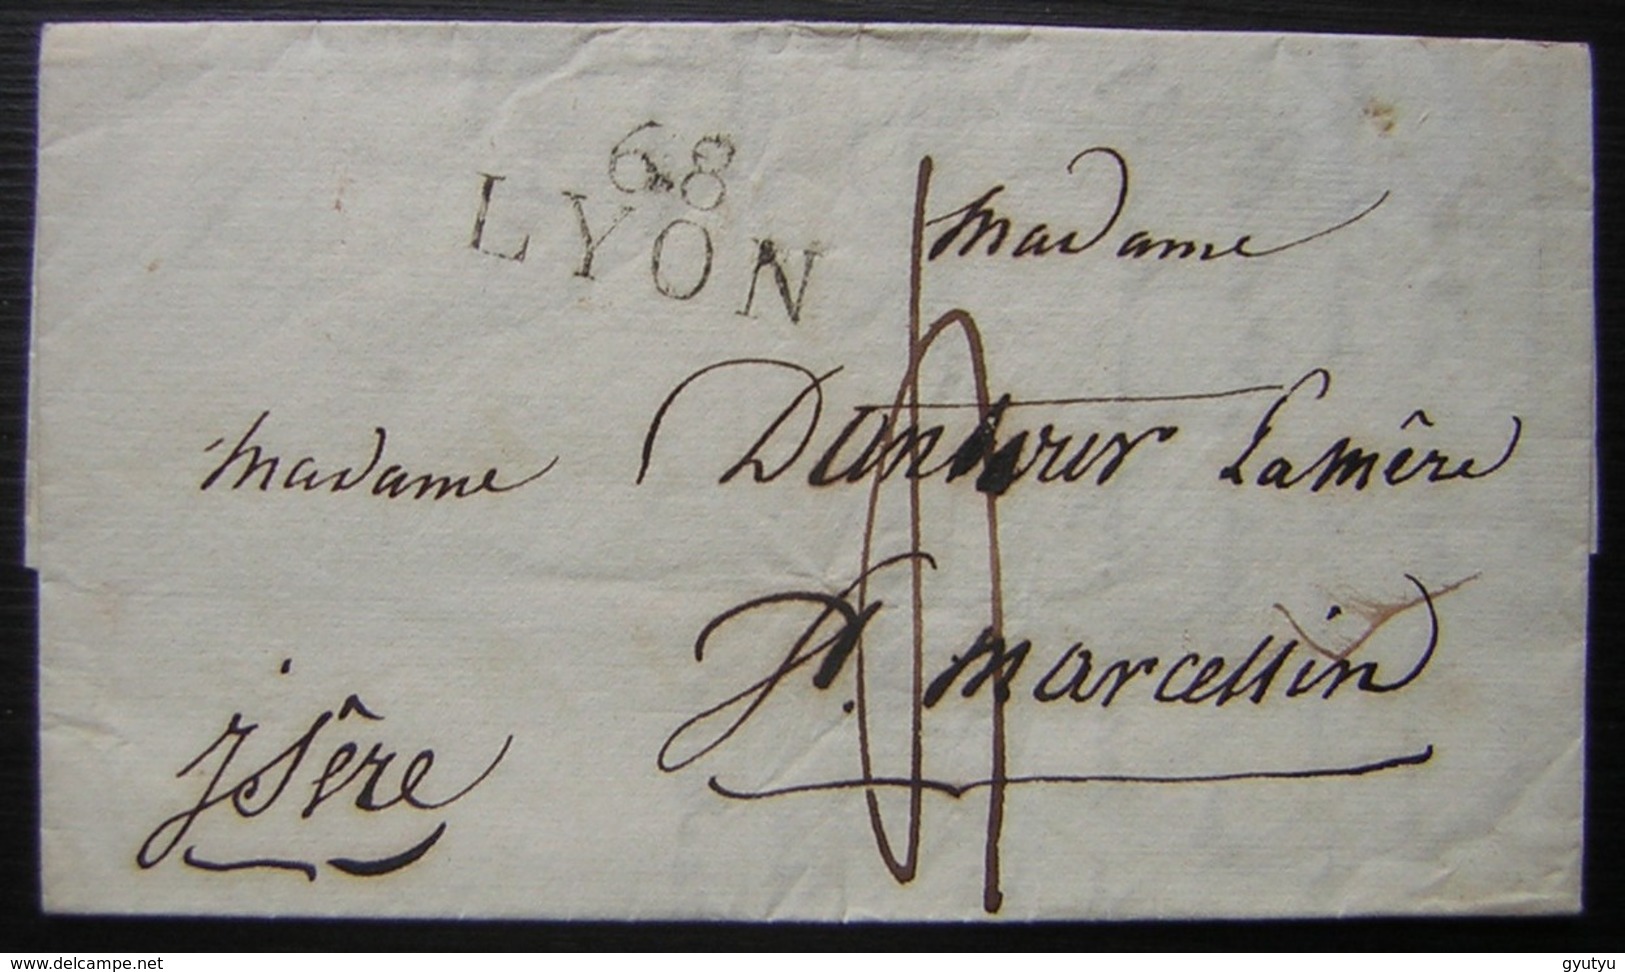 68
LYON
Madame
Madame Lamère
St. Marcellin
Jsêre
delcampe.net
gyutyu